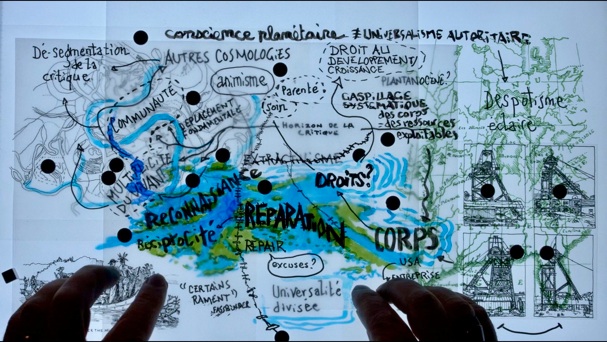 conscience planétaire ≠ UNIVERSALISME AUTORITAIRE
Dé-segmentation
de la
critique
AUTRES COSMOLOGIES
animisme
DROIT AU
DEVELOPEMENT/
CROISSANCE
Parenté
Soin
PLANTANOCÈNE?
GASPILLAGE
SYSTÉMATIQUE
des corps
des ressources
exploitables
Despotisme
éclairé
COMMUNAUTÉ
HORIZON DE LA
CRITIQUE
EXTRACTIVISME
DROITS?
RÉPARATION
Réciprocité
REPAIR
CORPS
excuses?
USA
ENTREPRISE
"CERTAINS
Universalité
divisée